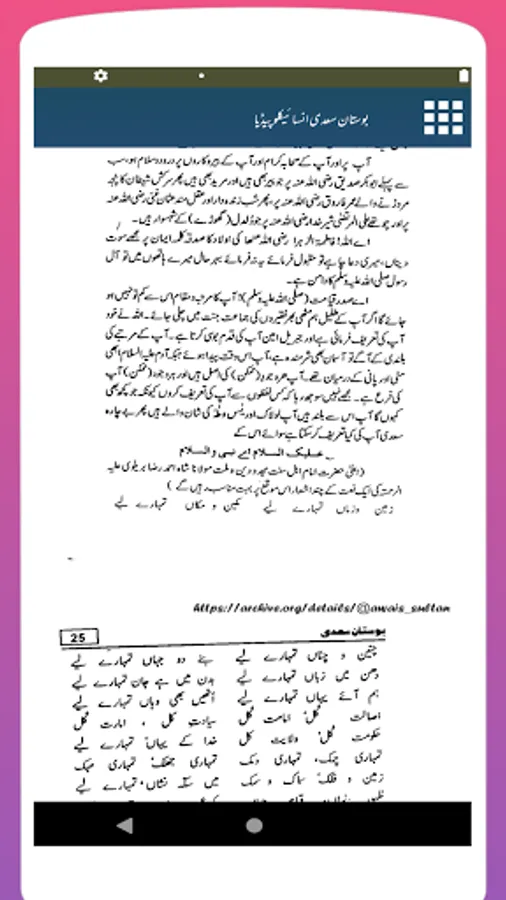 بوستان سعدی انسائیکلوپیڈیا
آپ پر اور آپ کے صحابہ کرام اور آپ کے پیروکاروں پر درود و سلام ہو، سب
سے پہلے ابوبکر صدیق رضی اللہ عنہ پر جو پیر بھی ہیں اور مرید بھی ہیں پھر سرکش شیطان کا پنجہ
مروڑنے والے عمر فاروق رضی اللہ عنہ پر، پھر شب زندہ دار اور عقل مند عثمان غنی رضی اللہ عنہ
پر اور چوتھے علی المرتضیٰ شیر خدا رضی اللہ عنہ پر جو دُلدل (گھوڑے) کے شہسوار ہیں۔
اے اللہ! فاطمۃ الزہرا رضی اللہ عنھا کی اولاد کا صدقہ کلمہ ایمان پر مجھے موت
دینا، میری دعا چاہے تو مقبول فرمائے یا نہ فرمائے بہر حال میرے ہاتھوں میں تو آل
رسول صلی اللہ علیہ وسلم کا دامن ہے۔
اے صدر قیامت (صلی اللہ علیہ وسلم)! آپ کا مرتبہ و مقام اس سے کم تو نہیں ہو
جائے گا اگر آپ کے طفیل ہم مٹھی بھر فقیروں کی جماعت جنت میں چلی جائے۔ اللہ نے خود
آپ کی تعریف فرمائی ہے اور جبریل امین آپ کی قدم بوسی کرتا ہے۔ آپ کے مرتبے کی
بلندی کے آگے تو آسمان بھی شرمندہ ہے، آپ اس وقت پیدا ہوئے جبکہ آدم علیہ السلام ابھی
مٹی اور پانی کے درمیان تھے۔ آپ ہر وجود (ممکن) کی اصل ہیں اور ہر وجود (ممکن) آپ
کی فرع ہے۔ مجھے نہیں سوجھ رہا کہ کس لفظوں سے آپ کی تعریف کروں کیونکہ جو کچھ بھی
کہوں گا آپ اس سے بلند ہیں آپ لولاک اور یٰس و طہٰ کی شان والے ہیں پھر بے چارہ
سعدی آپ کی کیا تعریف کر سکتا ہے سوائے اس کے
علیک السلام اے نبی و السلام
(اعلیٰ حضرت امام اہل سنت مجدد دین و ملت مولانا شاہ احمد رضا بریلوی علیہ
الرحمۃ کی ایک نعت کے چند اشعار اس موقع پر بہت مناسب رہیں گے)
زمین و زماں تمہارے لیے مکین و مکاں تمہارے لیے
https://archive.org/details/@awais_sultan
بوستان سعدی 25
چنین و چناں تمہارے لیے بنے دو جہاں تمہارے لیے
دہن میں زباں تمہارے لیے بدن میں ہے جان تمہارے لیے
ہم آئے یہاں تمہارے لیے اٹھیں بھی وہاں تمہارے لیے
اصالت کُل، امامت کُل سیادت کل، امارت کُل
حکومت کُل، ولایت کل خدا کے یہاں تمہارے لیے
تمہاری چمک، تمہاری دمک تمہاری جھلک، تمہاری مہک
زمین و فلک، سماک و سمک میں سکّہ نشاں، تمہارے لیے